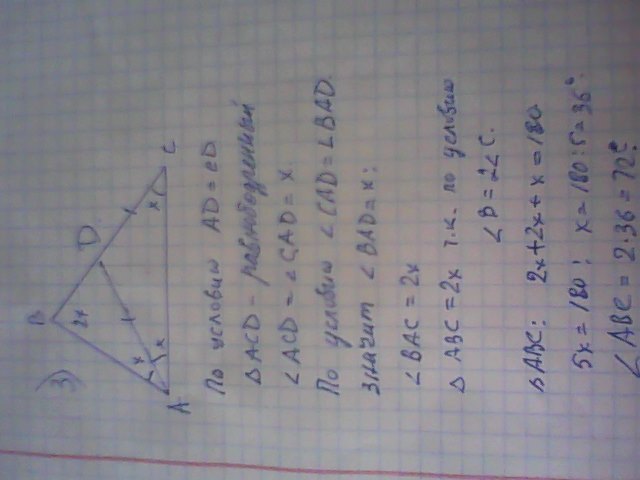 3)
B
2x
D
x
x
x
A
C
По условию AD = CD
△ ACD - равнобедренный
∠ ACD = ∠ CAD = x.
По условию ∠ CAD = ∠ BAD.
Значит ∠ BAD = x;
∠ BAC = 2x
△ ABC = 2x т.к. по условию
∠ B = 2∠ C.
△ ABC: 2x + 2x + x = 180
5x = 180; x = 180 : 5 = 36°
∠ ABC = 2·36 = 72°